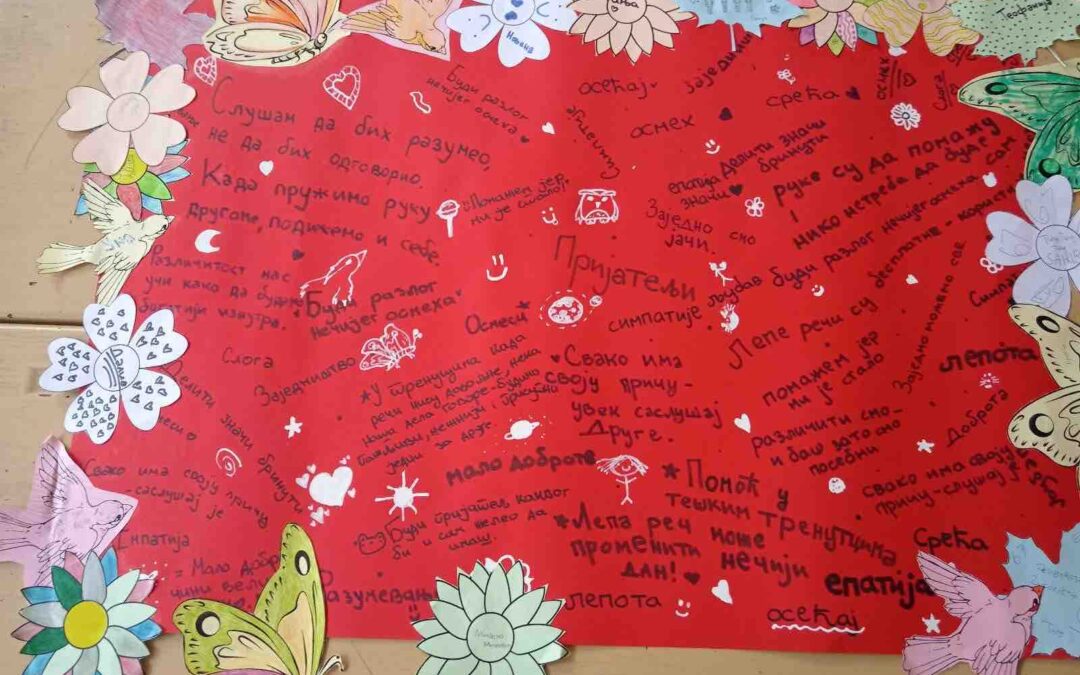 Слушам да бих разумео,
не да бих одговорио.
Када пружимо руку
другоме, подижемо и себе.
Различитост нас
учи како да будемо
богатији изнутра.
Буди разлог
нечијег осмеха
осећај
заједно
осмех
срећа
осмех
Слога
Теофанија
емпатија Делити значи
значи бринути
руке су да помажу
и нико нетреба да буде сам
Помажем јер
ми је стало
Заједно смо
јачи.
Пријатељи
љубав буди разлог нечијег осмеха
Лепе речи су бесплатне - користи
Заједно можемо све
Буди разлог
нечијег осмеха
Осмеси
симпатије
Слога
Заједништво
У тренуцима када
речи нису довољне, нека
наша дела говоре - будимо
пажљиви, нежнији и присутни
једни за друге.
Свако има
своју причу -
увек саслушај
друге.
помажем јер
ми је стало
лепота
Доброта
различити смо -
и баш зато смо
посебни
Далија
Делити значи бринути
Свако има своју причу
- саслушај је
мало доброте
Помоћ у
тешким тренутцима
свако има своју
причу - слушај је
Срећа
Буди пријатељ каквог
би и сам желео да
имаш.
Лепа реч може
променити нечији
дан!
емпатија
= Мало доброте
чини
разумевање
лепота
осећај